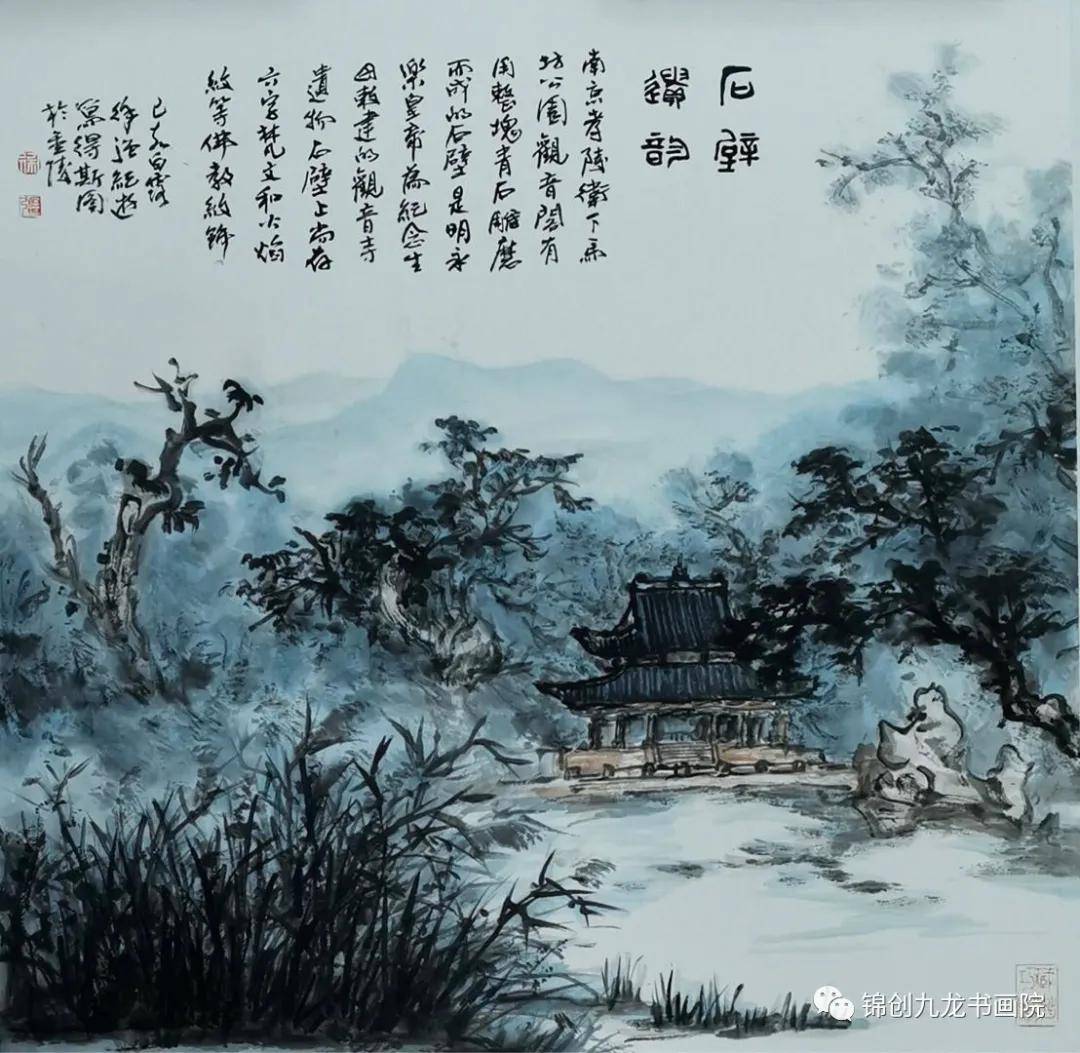 石壁
遗韵
南京孝陵衛下馬
坊公園觀音閣有
用整塊青石雕鑿
而成的石壁是明永
樂皇帝為紀念生
母敕建的觀音寺
遺物石壁上尚存
六字梵文和火焰
紋等佛教紋飾
己亥白露
徐强紀遊
寫得斯圖
於金陵
锦创九龙书画院